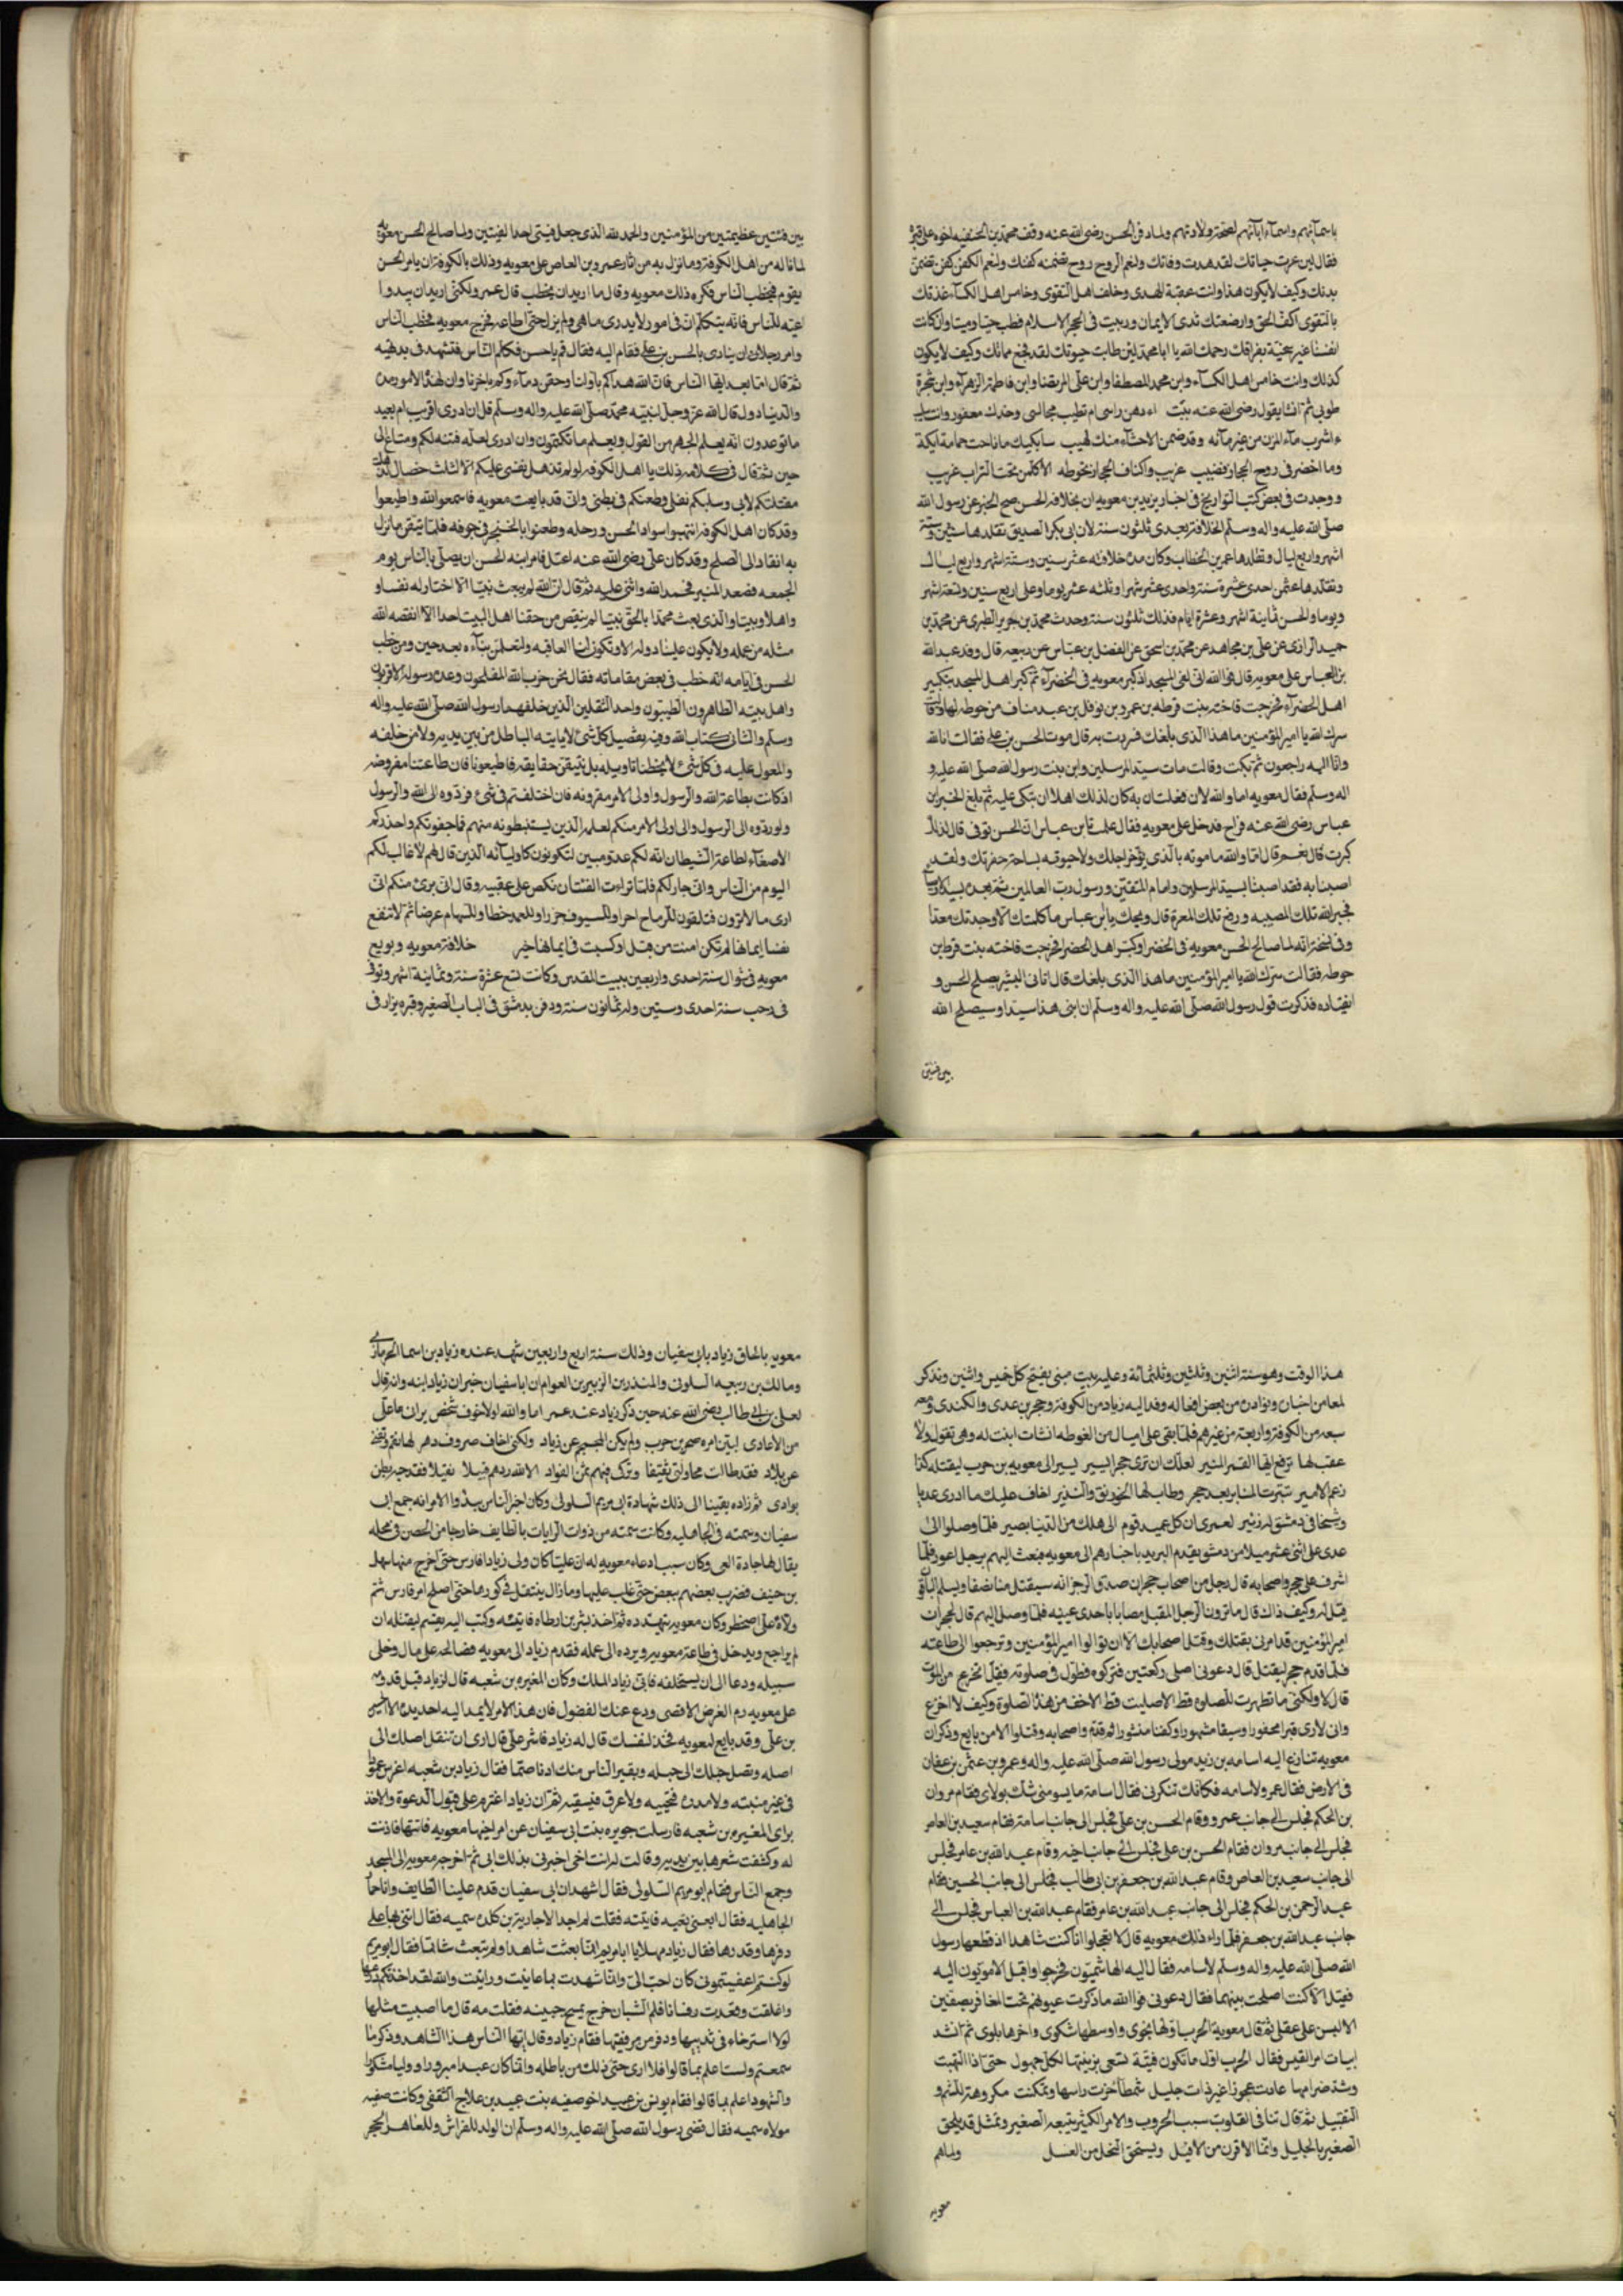 باسمآئهم واسمآء ابآئهم لصحة ولادتهم ولما دفن الحسن رضى الله عنه وقف محمد بن الحنفيه اخوه على قبره
فقال لئن عزت حياتك لقد هدت وفاتك ولنعم الروح روح تضمنه كفنك ولنعم الكفن كفن تضمن
بدنك وكيف لا يكون هذا وانت عقبة الهدى وخلف اهل التقوى وخامس اهل الكسآء غذتك
بالتقوى اكف الحق وارضعتك ثدى الايمان وربيت فى الحجر الاسلام فطب حيا وميتا وان كانت
انفسنا غير سخية بفراقك رحمك الله يا ابا محمد لئن طابت حيوتك لقد فجع مماتك وكيف لا يكون
كذلك وانت خامس اهل الكسآء وابن محمد المصطفا وابن على المرتضا وابن فاطمة الزهرآء وابن شجرة
طوبى ثم انشا يقول رضى الله عنه ءادهن راسى ام تطيب مجالسى وخدك معفور وانت سليب
ءاشرب مآء المزن من غير مآئه وقد ضمن الاحشآء منك لهيب سابكيك ما ناحت حمامة ايكة
وما اخضر فى روح الحجاز قضيب غريب واكناف الحجاز تحوطه الا كل من تحت التراب غريب
ووجدت فى بعض كتب التواريخ فى اخبار يزيد بن معويه ان بخلافة الحسن صح الخبر عن رسول الله
صلى الله عليه واله وسلم الخلافة بعدى ثلثون سنة لان ابى بكر الصديق تقلدها سنتين وثلثة
اشهر واربع ليال وتقلدها عمر بن الخطاب وكان مدة خلافته عشر سنين وستة اشهر واربع ليال
وتقلدها عثمن احدى عشرة سنة واحدى عشر شهرا وثلثه عشر يوما وعلى اربع سنين وتسعة اشهر
ويوما والحسن ثمانية اشهر وعشرة ايام فذلك ثلثون سنة وحدث محمد بن جرير الطبرى عن محمد بن
حميد الرازى عن على بن مجاهد عن محمد بن اسحق عن الفضل بن عباس عن ربيعه قال وفد عبد الله
بن العباس على معويه قال فوالله انى لفى المسجد اذ كبر معويه فى الخضرآء ثم كبر اهل المسجد بتكبير
اهل الخضرآء فخرجت فاخته بنت قرطه بن عمرو بن نوفل بن عبد مناف من خوخه لها وقالت
سرك الله يا امير المؤمنين ما هذا الذى بلغك فسررت به قال موت الحسن بن على فقالت انا لله
وانا اليه راجعون ثم بكت وقالت مات سيد المرسلين وابن بنت رسول الله صلى الله عليه و
اله وسلم فقال معويه اما والله لان فعلت انه كان لذلك اهلا ان تبكى عليه ثم بلغ الخبر ابن
عباس رضى الله عنه فراح فدخل على معويه فقال علمت يا بن عباس ان الحسن توفى قال لذلك
كبرت قال نعم قال اما والله ما موته بالذى يؤخر اجلك ولا حفرته بسادة حفرتك ولقد
اصبنا به فقد اصبنا بسيد المرسلين وامام المتقين ورسول رب العالمين ثم بعده بسيد الاوصيا
فجبر الله تلك المصيبه ورفع تلك العبرة قال ويحك يا بن عباس ما كلمتك الا وجدتك معدا
وفى نسخة انه لما صالح الحسن معويه فى الخضرا وكبر اهل الخضرا فخرجت فاخته بنت قرطه بن
حوطه فقالت سرك الله يا امير المؤمنين ما هذا الذى بلغك قال اتانى البشير بصلح الحسن و
انقياده فذكرت قول رسول الله صلى الله عليه واله وسلم ان ابنى هذا سيدا وسيصلح الله
بين فئتين
بين فئتين عظيمتين من المؤمنين والحمد لله الذى جعل فيتى احدا لفئتين ولما صالح الحسن معويه
لما ناله من اهل الكوفة وما نزل به من اشار عمرو بن العاص على معويه وذلك بالكوفة ان يامر الحسن
يقوم فيخطب الناس فكره ذلك معويه وقال ما اريد ان يخطب قال عمر ولكنى اريد ان يبدوا
عيه للناس فانه يتكلم فى امور لا يدرى ما هى ولم يزل حتى اطاعه فخرج معويه فخطب الناس
وامر رجلا ان ينادى بالحسن بن على فقام اليه فقال قم يا حسن فكلم الناس فتشهد فى بديهيه
ثم قال اما بعد ايها الناس فان الله هداكم باولنا وحقن دماءكم باخرنا وان لهذا الامور مدة
والدنيا دول قال الله عز وجل لنبيه محمد صلى الله عليه واله وسلم قل ان ادرى اقريب ام بعيد
ما توعدون انه يعلم الجهر من القول ويعلم ما تكتمون وان ادرى لعله فتنه لكم ومتاع الى
حين ثم قال فى كلامه ذلك يا اهل الكوفه لو لم تذهل نفسى عليكم الا لثلث خصال لذهلت
مقتلكم لابى وسلبكم نقلى وطعنكم فى بطنى وانى قد بايعت معويه فاسمعوا لله واطيعوا
وقد كان اهل الكوفه انتهبوا سواد الحسن ورحله وطعنوا بالخنجر فى جوفه فلما تيقن ما نزل
به انقاد الى الصلح وقد كان على رضى الله عنه اعتل فامر ابنه الحسن ان يصلى بالناس يوم
الجمعه فصعد المنبر فحمد الله واثنى عليه ثم قال ان الله لم يبعث نبيا الا اختار له نفسا و
واهلا وبيتا والذى بعث محمدا بالحق نبيا لم ينقص من حقنا اهل البيت احدا الا انقصه الله
مثله من عمله ولا يكون علينا دوله الا وتكون لنا العاقبه ولتعلمن نبآءه بعد حين ومن خطب
الحسن فى ايامه انه خطب فى بعض مقاماته فقال نحن حزب الله المفلحون وعترة رسوله الاقربون
واهل بيته الطاهرون الطيبون واحد الثقلين الذين خلفهما رسول الله صلى الله عليه واله
وسلم والثانى كتاب الله وفيه تفصيل كل شئ لا ياتيه الباطل من بين يديه ولا من خلفه
والمعول عليه فى كل شئ لا يخطئنا تاويله بل نتيقن حقايقه فاطيعونا فان طاعتنا مفروضه
اذ كانت بطاعة الله والرسول واولى الامر مقرونه فان اختلفتم فى شئ فردوه الى الله والرسول
ولو ردوه الى الرسول والى اولى الامر منكم لعلمه الذين يستنبطونه منهم واحذركم
الاصغآء لطاعة الشيطان انه لكم عدو مبين لتكونون كاوليآئه الذين قال لهم لا غالب لكم
اليوم من الناس وانى جار لكم فلما تراءت الفئتان نكص على عقبيه وقال انى برئ منكم انى
ارى ما لا ترون فتلقون للرماح اجرا وللسيوف جزرا وللعمد خطا وللسهام غرضا ثم لا تنفع
نفسا ايمانها لم تكن امنت من قبل او كسبت فى ايمانها خير خلافة معويه وبويع
معويه فى شوال سنة احدى واربعين ببيت القدس وكانت تسع عشرة سنة وثمانية اشهر وتوفى
فى رجب سنة احدى وستين وله ثمانون سنة ودفن بدمشق فى الباب الصغير وقبره يزار فى
هذا الوقت وهو سنة اثنين وثلثين وثلثمائة وعليه بيت مبنى يفتح كل خميس واثنين ونذكر
لمعا من اخباره ونوادره من بعض افعاله وفد اليه زياد من الكوفة وحجر بن عدى والكندى ومعه
سبعه من الكوفة واربعة من غيرهم فلما بقى على اميال من الغوطه انشات ابنت له وهى تقول ولا
عقب لها ترفع ايها القمر المنير لعلك ان ترى حجرا يسير يسير الى معويه بن حرب ليقتله كذا
زعم الامير تبترت المنابر بعد حجر وطاب لها الخورنق والسدير اخاف عليك ما اردى عديا
وشيخا فى دمشق له زئير لعمرى ان كل عميد قوم الى هلك من الدنيا يصير فلما وصلوا الى
عدى على اثنى عشر ميلا من دمشق يقدم البريد باخبارهم الى معويه فبعث اليهم برجل اعور فلما
اشرف على حجر واصحابه قال رجل من اصحاب حجر ان صدق الزجر انه سيقتل منا نصفا ويسلم الباقى
فقيل له وكيف ذاك قال ما ترون الرجل المقبل مصابا باحدى عينيه فلما وصل اليهم قال لحجر ان
امير المؤمنين قد امرنى بقتلك وقتل اصحابك الا ان توالوا امير المؤمنين وترجعوا الى طاعته
فلما قدم حجر ليقتل قال دعونى اصلى ركعتين فتركوه فطول فى صلوته فقيل اتجزع من الموت
قال لا ولكنى ما تطهرت للصلوة قط الا صليت قط الا خف من هذا الصلوة وكيف لا اجزع
وانى لارى قبرا محفورا وسيفا مشهورا وكفنا منشورا ثم قدم واصحابه وقتلوا الا من بايع وذكر ان
معويه تنازع اليه اسامه بن زيد مولى رسول الله صلى الله عليه واله وعمرو بن عثمن بن عفان
فى الارض فقال عمرو لاسامه فكانك تنكرنى فقال اسامة ما يسومنى شك بولاى فقام مروان
بن الحكم فجلس الى جانب عمرو وقام الحسن بن على فجلس الى جانب اسامة فقام سعيد بن العاص
فجلس الى جانب مروان فقام الحسين بن على فجلس الى جانب اخيه وقام عبد الله بن عامر فجلس
الى جانب سعيد بن العاص وقام عبد الله بن جعفر بن ابى طالب فجلس الى جانب الحسين فقام
عبد الرحمن بن الحكم فجلس الى جانب عبد الله بن عامر فقام عبد الله بن العباس فجلس الى
جانب عبد الله بن جعفر فلما راء ذلك معويه قال لا تعجلوا انا كنت شاهدا اذ قطعها رسول
الله صلى الله عليه واله وسلم لاسامه فقال اليه الهاشميون فخرجوا واقبل الامويون اليه
فقيل الا كنت اصلحت بينهما فقال دعونى فوالله ما ذكرت عيونهم تحت المغافر بصفين
الا لبس على عقلى ثم قال معوية الحرب اولها نجوى واوسطها شكوى واخرها بلوى ثم انشد
ابيات امر القيس فقال الحرب اول ما تكون فتية تسعى بزينتها لكل جهول حتى اذا التهبت
وشد ضرامها عادت عجوزا غير ذات حليل شمطا جزت راسها وتمكنت مكروهة للشم و
التقبيل ثم قال تنافى القلوب سبب الحروب والامر الكبير يتبعه الصغير وتمثل قد يلحق
الصغير بالجليل وانما الاقرن من الافيل ويستحق النخل من الفسل ولما هم
معويه
معويه بالحاق زياد بابى سفيان وذلك سنة اربع واربعين شهد عنده زياد بن اسما الحرمازى
ومالك بن ربيعه السلونى والمنذر بن الزبير بن العوام ان ابا سفيان خبر ان زياد ابنه وانه قال
لعلى بن ابى طالب رضى الله عنه حين ذكر زياد عند عمر اما والله لولا خوف شخص يرانى ما على
من الاعادى لبين امره صخر بن حرب ولم يكن المجمجم عن زياد ولكنى اخاف صروف دهر
عن بلاد فقد طالت محاولتى ثقيفا وتركى فيهم ثمر الفواد
بوادى ثم زاده يقينا الى ذلك شهادة ابى مريم السلولى وكان اخبر الناس ببدؤ الامر انه جمع ابى
سفيان وسميه فى الجاهليه وكانت سميه من ذوات الرايات بالطايف خارجا من الحصن فى محله
يقال لها حارة البغى وكان سبب ادعاء معويه له ان عليا كان ولى زيادا فارس حتى اخرج منها سهل
بن حنيف فضرب بعضهم ببعض حتى غلب عليها وما زال ينتقل فى كورها حتى اصلح امر فارس ثم
ولاه على اصطخر وكان معويه يتهدده ثم اخذ بشر بن ارطاه فابنيه وكتب اليه يقسم ليقتله ان
لم يراجع ويدخل فى طاعة معويه ويرده الى عمله فقدم زياد الى معويه فصالحه على مال وخلى
سبيله ودعا الى ان يستخلفه فابى زياد الملك وكان المغيره بن شعبه قال لزياد قبل قدومه
على معويه رم الغرض الاقصى ودع عنك الفضول فان هذا الامر لا يمد اليه احد يده الا الحسن
بن على وقد بايع لمعويه فخذ لنفسك قال له زياد فاشر على قال ارى ان تنقل اصلك الى
اصله وتصل حبلك الى حبله وتعير الناس منك اذنا صما فقال زياد بن شعبه اغرس عودا
فى غير منبته ولا مدرة فتحييه ولا عرق فيسقيه ثم ان زيادا عزم على قبول الدعوة والاخذ
براى المغيره بن شعبه فارسلت جويره بنت ابى سفيان عن امر اخيها معويه فاتتها فاذنت
له وكشفت شعرها بين يديه وقالت له انت اخى اخبرنى بذلك ابى ثم اخرجه معويه الى المسجد
وجمع الناس فقام ابو مريم السلولى فقال اشهد ان ابى سفيان قدم علينا الطايف وانا خمار
الجاهليه فقال ابغنى بغيه فاتيته فقلت لم اجد الا جاريه بن كلده سميه فقال ائتنى بها على
دفرها وقذرها فقال زياد مهلا يا ابا مريم انما بعثت شاهدا ولم تبعث شاتما فقال ابو مريم
لو كنتم اعفيتمونى كان احب الى وانما شهدت بما عاينت ورايت والله لقد اخذ بكم درعها
واغلقت وقعدت فلم البث ان خرج يمسح جبينه فقلت مه قال ما اصبت مثلها
لولا استرخاء فى ثديها ودفر من مرفقيها فقام زياد وقال ايها الناس هذا الشاهد وذكر ما
سمعتم ولست اعلم بما قالوا فلا ادرى حتى ذلك من باطله وانما كان عبيد مبرورا ووليا مشكورا
والشهود اعلم بما قالوا فقام يونس بن عبيد اخو صفيه بنت عبيد بن علاج الثقفى وكانت صفيه
مولاه سميه فقال قضى رسول الله صلى الله عليه واله وسلم ان الولد للفراش وللعاهر الحجر